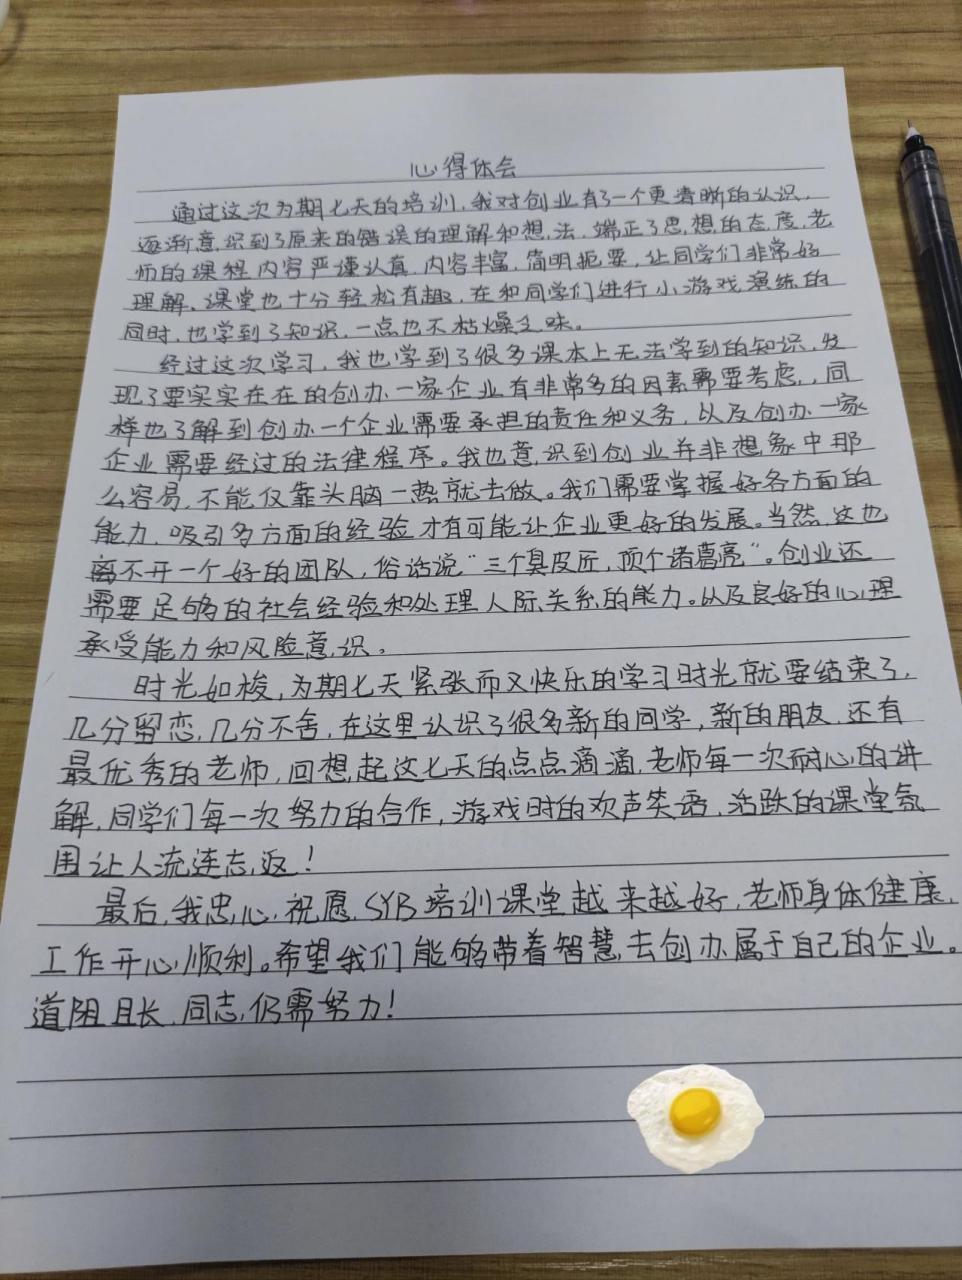 心得体会
通过这次为期七天的培训，我对创业有了一个更清晰的认识，
逐渐意识到了原来的错误的理解和想法，端正了思想的态度，老
师的课程内容严谨认真，内容丰富，简明扼要，让同学们非常好
理解、课堂也十分轻松有趣，在和同学们进行小游戏演练的
同时，也学到了知识，一点也不枯燥乏味。
经过这次学习，我也学到了很多课本上无法学到的知识，发
现了要实实在在的创办一家企业有非常多的因素需要考虑，，同
样也了解到创办一个企业需要承担的责任和义务，以及创办一家
企业需要经过的法律程序。我也意识到创业并非想象中那
么容易，不能仅靠头脑一热就去做。我们需要掌握好各方面的
能力，吸引多方面的经验才有可能让企业更好的发展。当然，这也
离不开一个好的团队，俗话说“三个臭皮匠，顶个诸葛亮”。创业还
需要足够的社会经验和处理人际关系的能力。以及良好的心理
承受能力和风险意识。
时光如梭，为期七天紧张而又快乐的学习时光就要结束了，
几分留恋，几分不舍，在这里认识了很多新的同学，新的朋友，还有
最优秀的老师，回想起这七天的点点滴滴，老师每一次耐心的讲
解，同学们每一次努力的合作，游戏时的欢声笑语，活跃的课堂氛
围让人流连忘返！
最后，我忠心祝愿SYB培训课堂越来越好，老师身体健康，
工作开心顺利。希望我们能够带着智慧去创办属于自己的企业。
道阻且长，同志仍需努力！